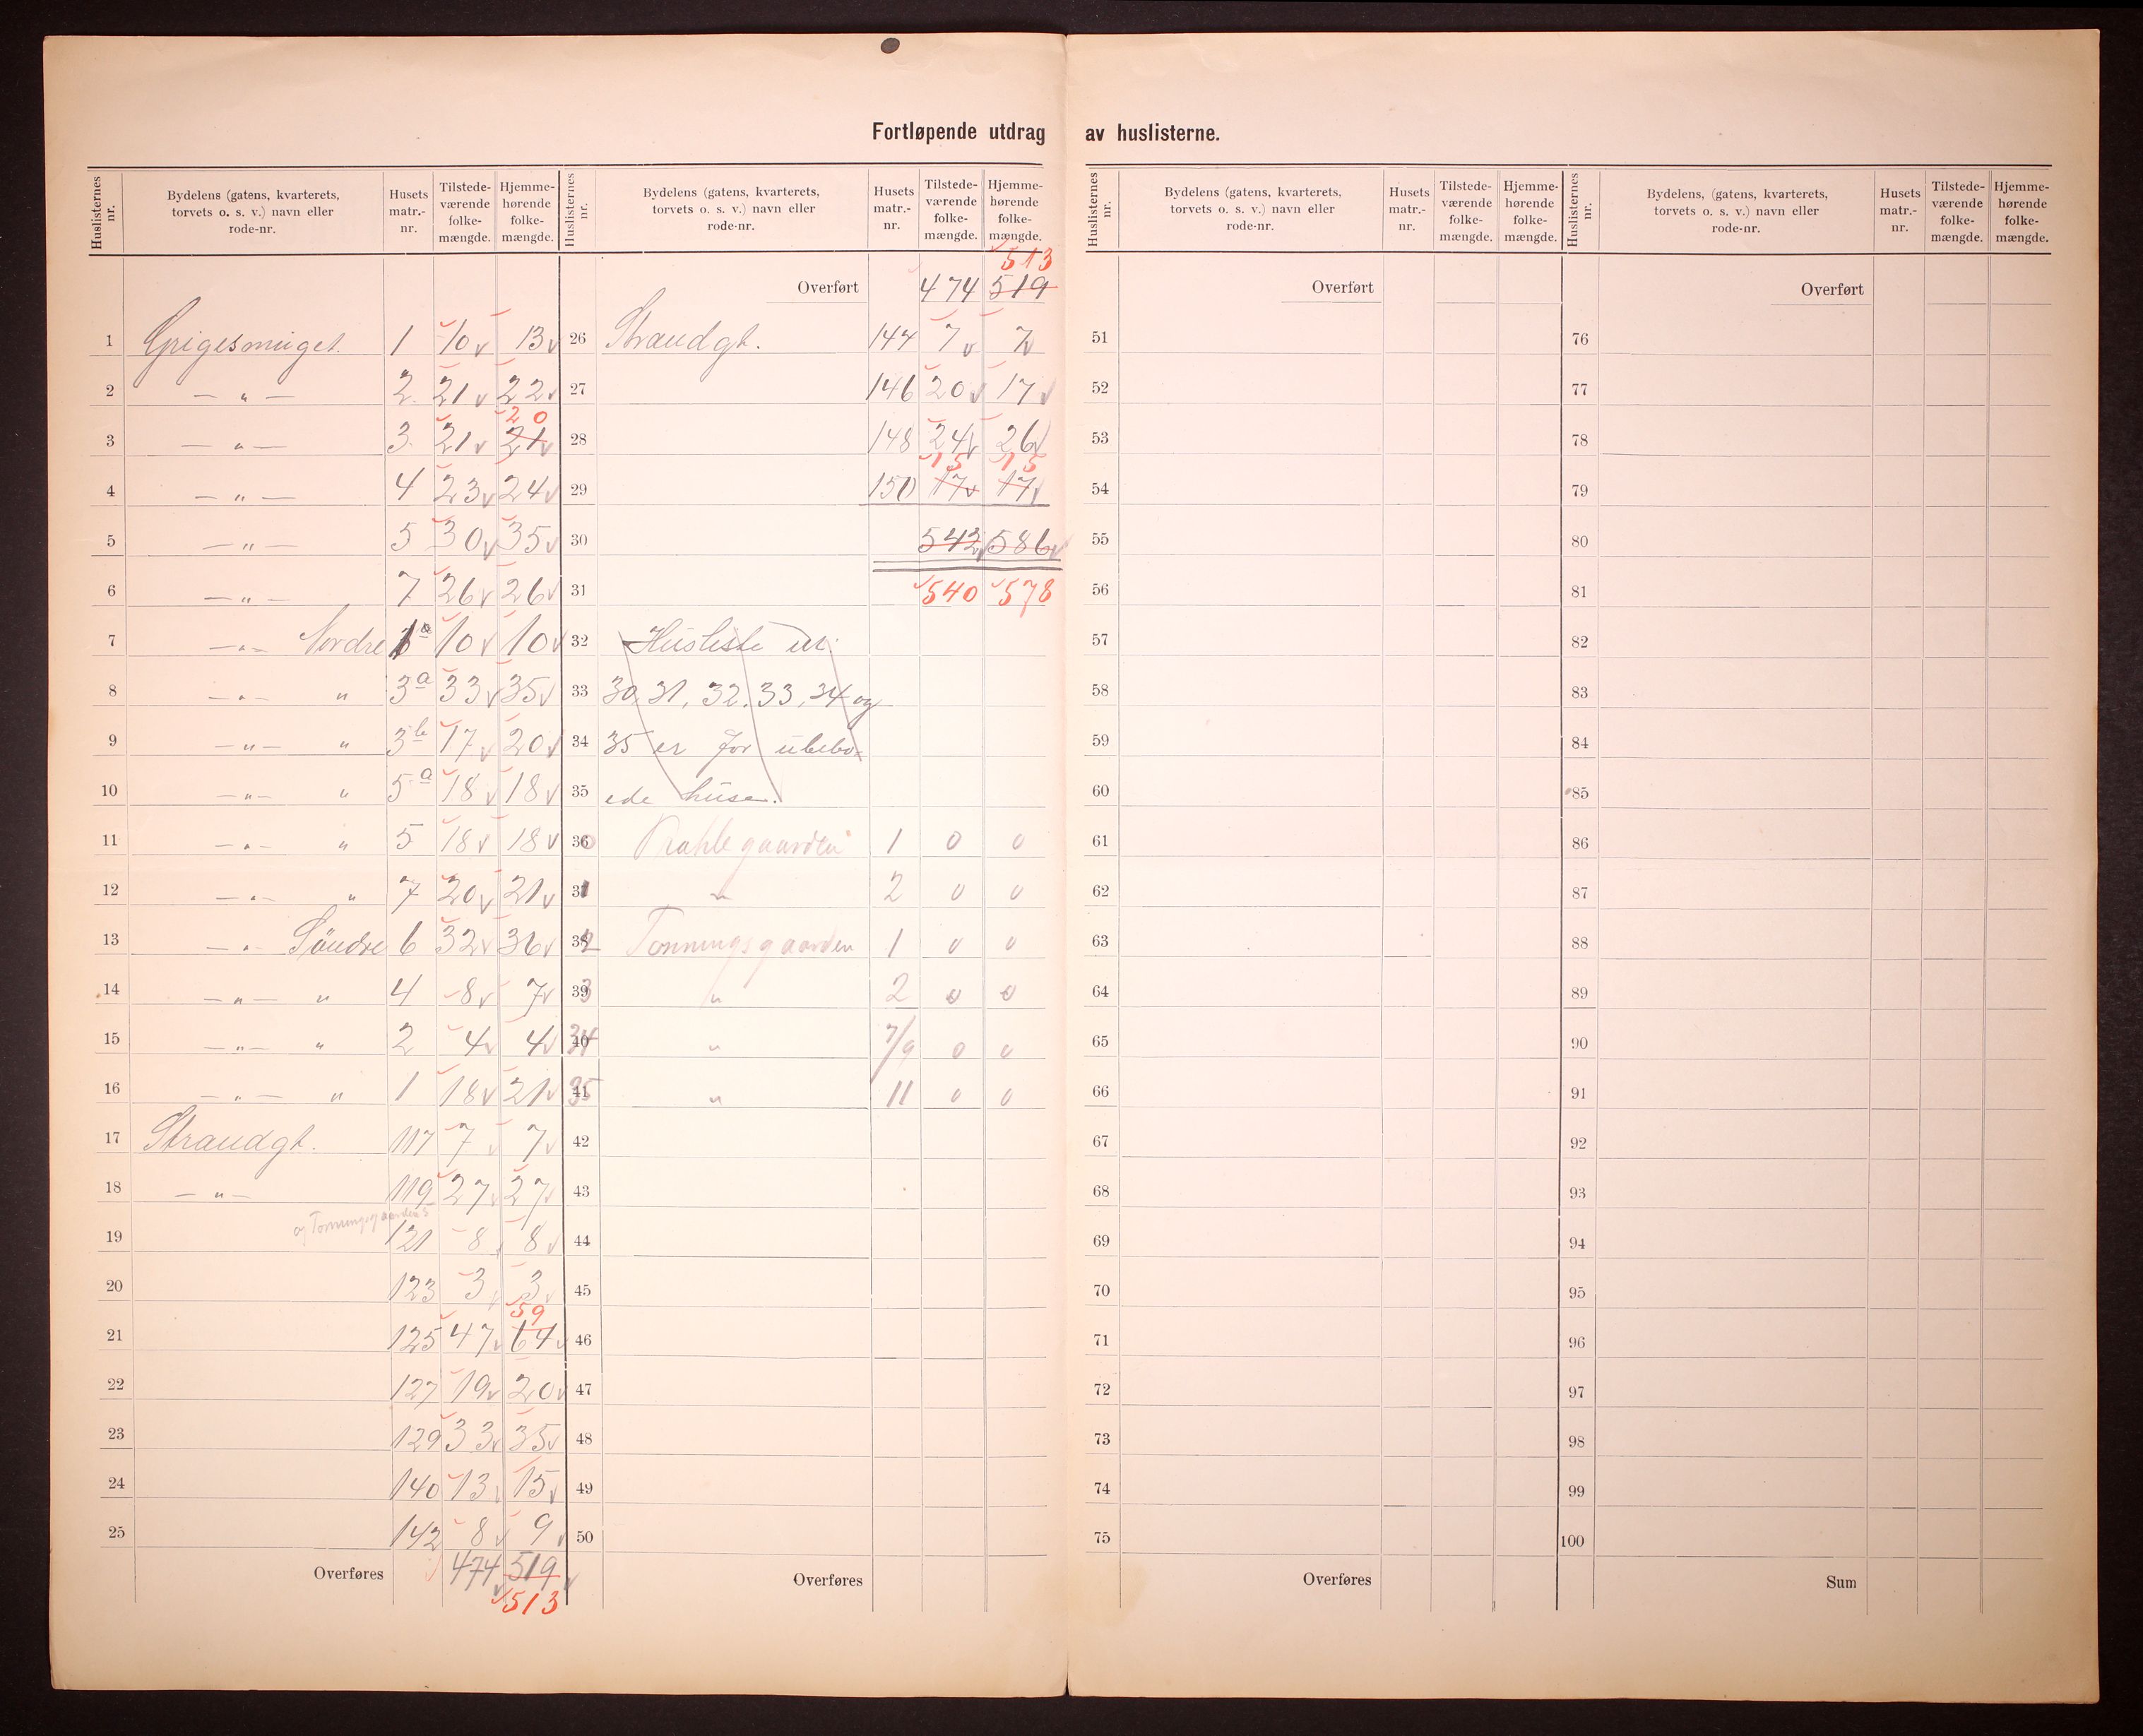 Fortløpende utdrag av huslisterne.
Huslisternes nr. Bydelens (gatens, kvarterets, torvets o. s. v.) navn eller rode-nr. Husets matr.-nr. Tilstede-værende folke-mængde. Hjemme-hørende folke-mængde.
1 Grigesmuget. 1 10 v 13 v
2 — " — 2. 21 v 22 v
20
3 — " — 3. 21 v 21 v
4 — " — 4 23 v 24 v
5 — " — 5 30 v 35 v
6 — " — 7 26 v 26 v
7 — " — Nordre 1a 10 v 10 v
8 — " — " 3a 33 v 35 v
9 — " — " 3b 17 v 20 v
10 — " — " 5a 18 v 18 v
11 — " — " 5 18 v 18 v
12 — " — " 7 20 v 21 v
13 — " — Söndre 6 32 v 36 v
14 — " — " 4 8 v 7 v
15 — " — " 2 4 v 4 v
16 — " — " 1 18 v 21 v
17 Strandgt. 117 7 v 7 v
18 — " — 119 27 v 27 v
og Tonningsgaarden 5
19 121 8 v 8 v
20 123 3 v 3 v
59
21 125 47 v 64 v
22 127 19 v 20 v
23 129 33 v 35 v
24 140 13 v 15 v
25 142 8 v 9 v
Overføres 474 v 519 v
513
Huslisternes nr. Bydelens (gatens, kvarterets, torvets o. s. v.) navn eller rode-nr. Husets matr.-nr. Tilstede-værende folke-mængde. Hjemme-hørende folke-mængde.
513
Overført 474 519
26 Strandgt. 144 7 v 7 v
27 146 20 v 17 v
28 148 24 v 26 v
15 15
29 150 17 v 17 v
30 542 v 586 v
31 540 578
32 Husliste nr.
33 30, 31, 32, 33, 34 og
34 35 er for ubebo-
35 ede huse.
36 30 gaarden 1 0 0
37 31 " 2 0 0
38 32 Tonningsgaarden 1 0 0
39 33 " 2 0 0
40 34 " 7/9 0 0
41 35 " 11 0 0
42
43
44
45
46
47
48
49
50
Overføres
Huslisternes nr. Bydelens (gatens, kvarterets, torvets o. s. v.) navn eller rode-nr. Husets matr.-nr. Tilstede-værende folke-mængde. Hjemme-hørende folke-mængde.
Overført
51
52
53
54
55
56
57
58
59
60
61
62
63
64
65
66
67
68
69
70
71
72
73
74
75
Overføres
Huslisternes nr. Bydelens, (gatens, kvarterets, torvets o. s. v.) navn eller rode-nr. Husets matr.-nr. Tilstede-værende folke-mængde. Hjemme-hørende folke-mængde.
Overført
76
77
78
79
80
81
82
83
84
85
86
87
88
89
90
91
92
93
94
95
96
97
98
99
100
Sum